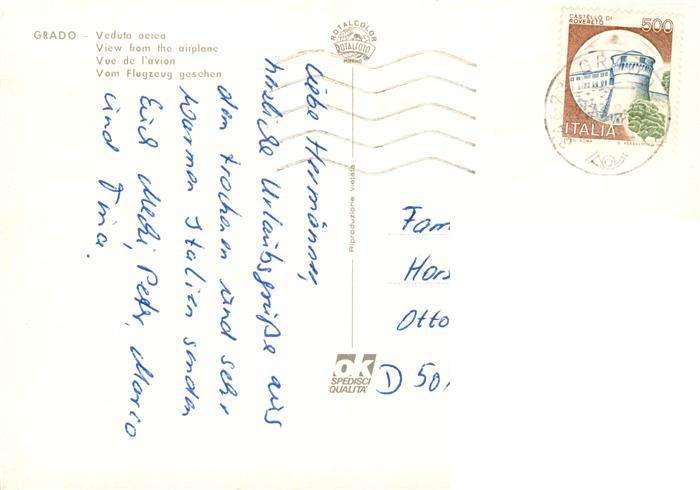 GRADO - Veduta aerea
View from the airplane
Vue de l'avion
Vom Flugzeug gesehen
ROTALCOLOR
ROTALFOTO
MILANO
CASTELLO DI
ROVERETO
500
ITALIA
Liebe Hormänner,
herzliche Urlaubsgrüße aus
dem trockenen und sehr
warmen Italien senden
Euch Mecki, Peter, Mario
und Tina.
Riproduzione vietata
Fam
Hors
Otto
D 50
ok
SPEDISCI
QUALITÀ